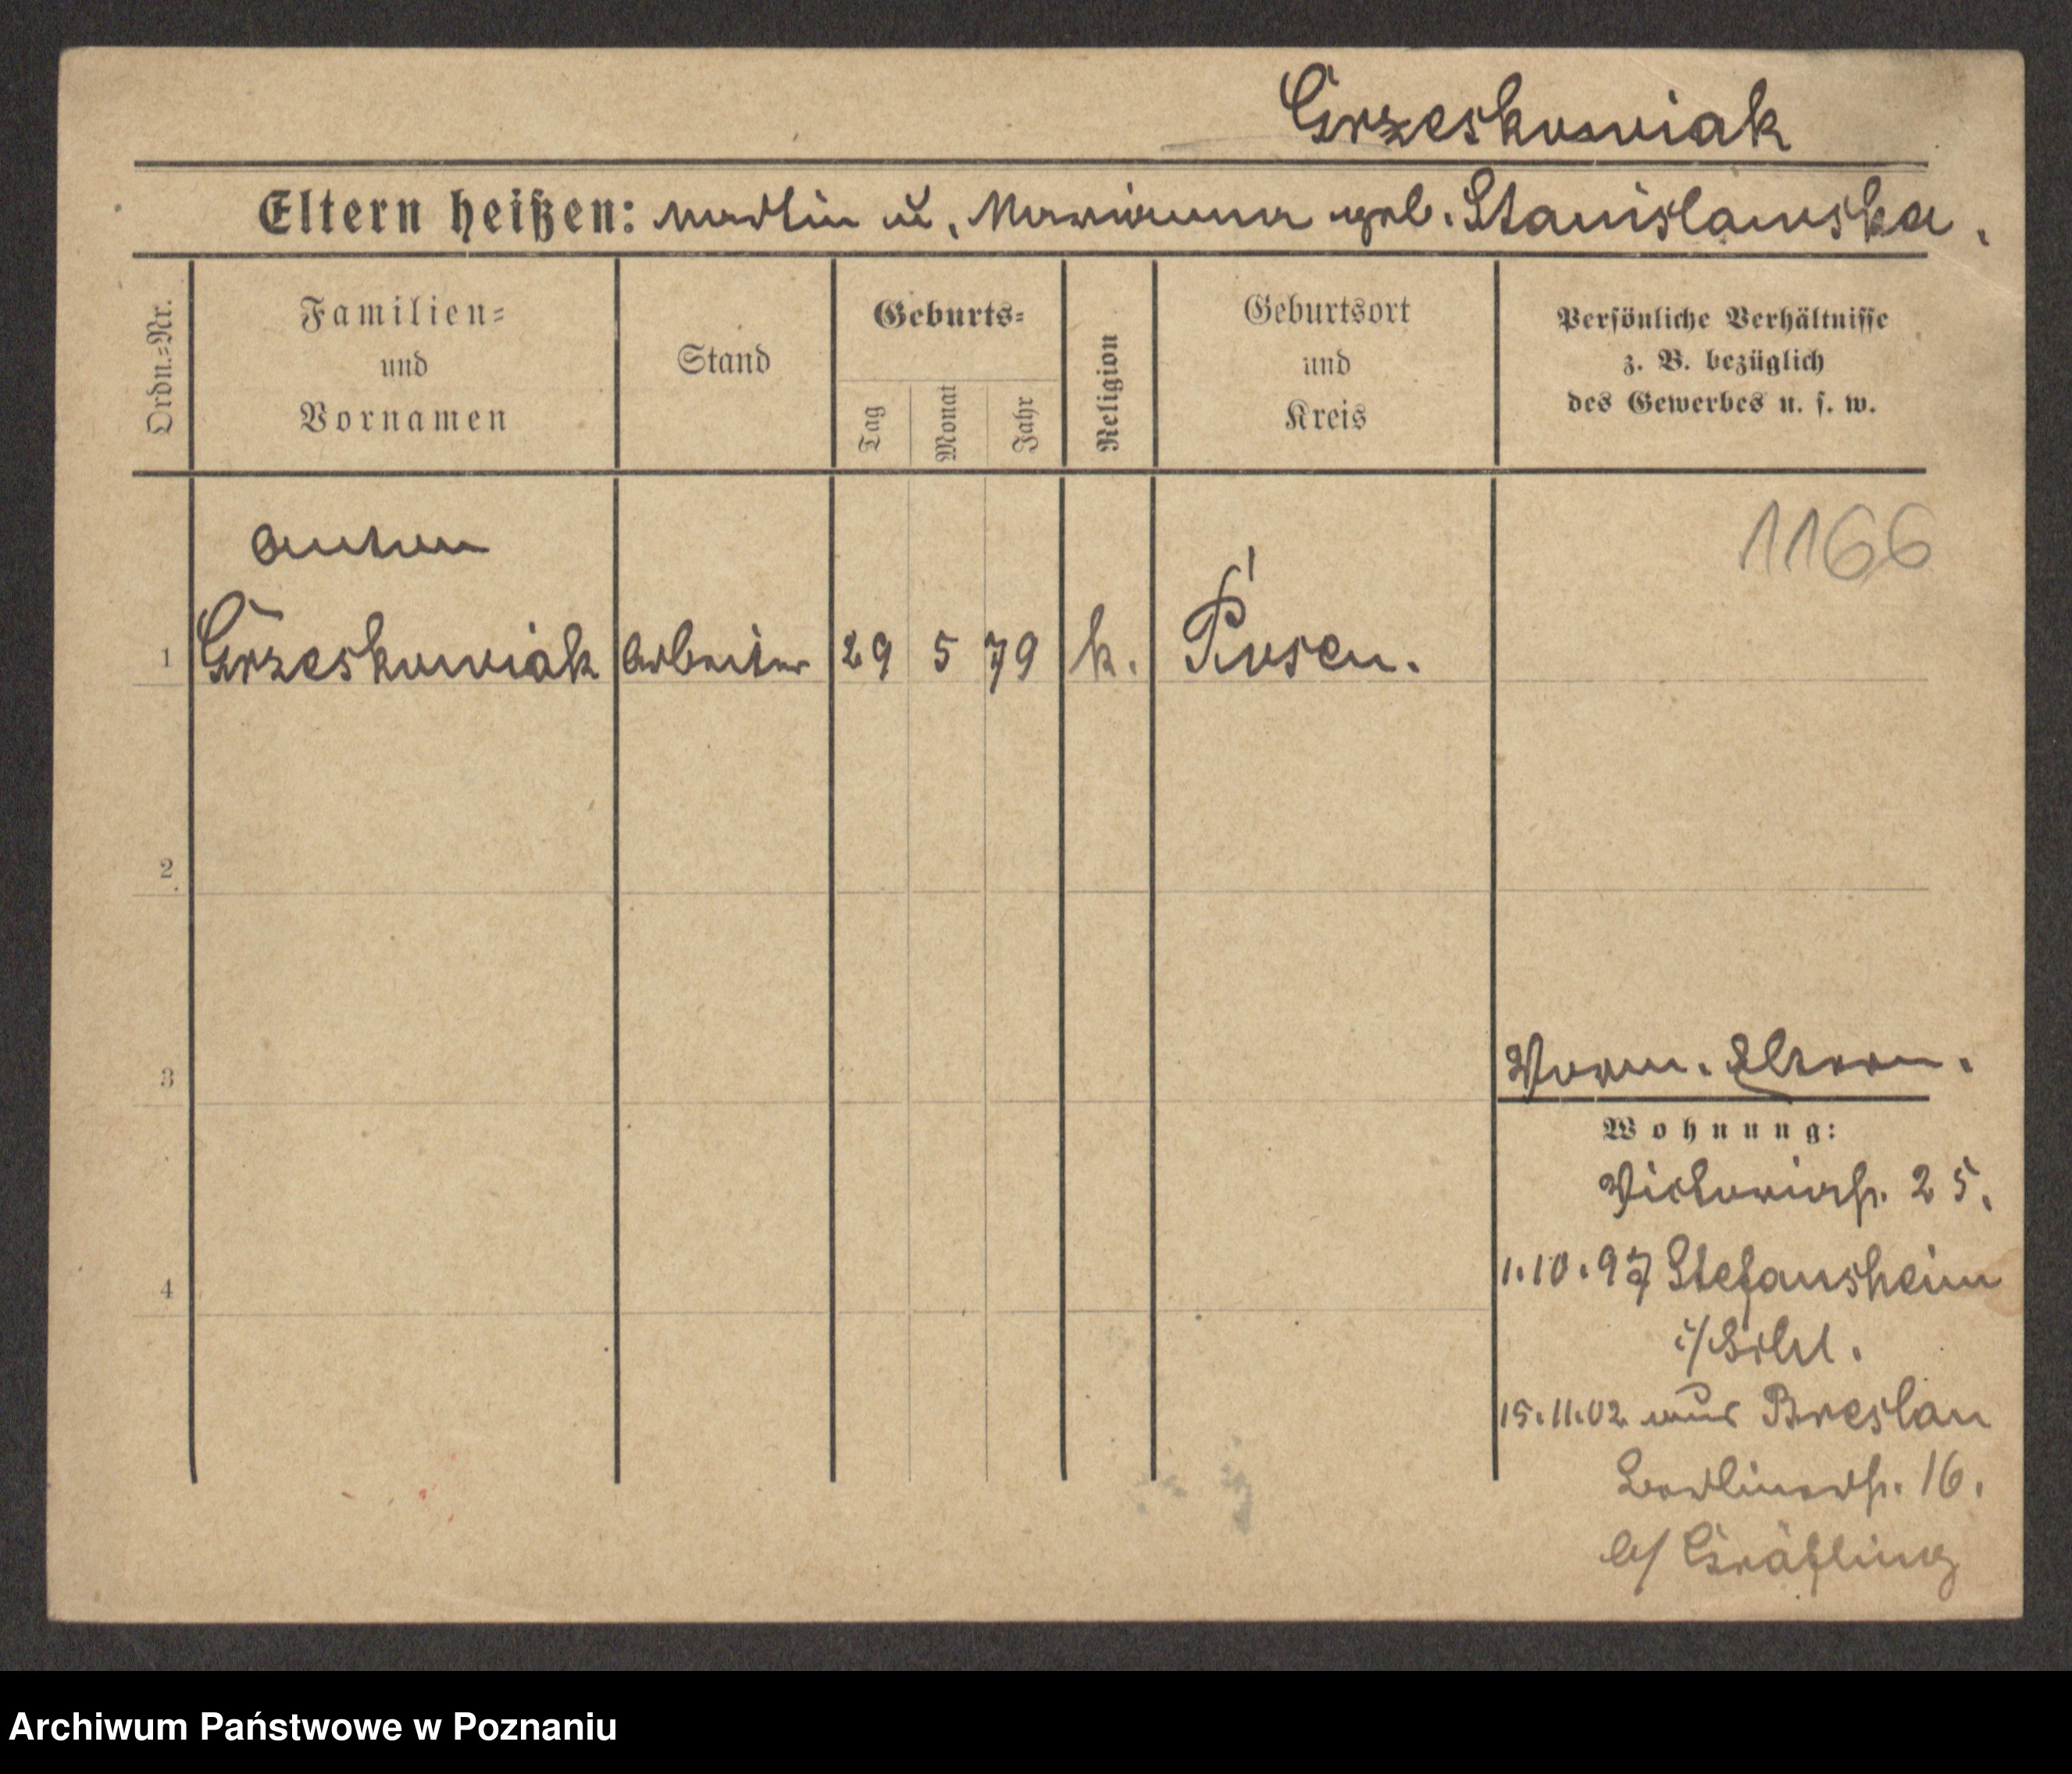 Grzeskowiak
Eltern heißen: Martin u. Marianna geb. Stanislawska.
Ordn.-Nr.
Familien- und Vornamen
Stand
Geburts-
Tag
Monat
Jahr
Religion
Geburtsort und Kreis
Persönliche Verhältnisse z. B. bezüglich des Gewerbes u. s. w.
1166
Anton
1 Grzeskowiak Arbeiter 29 5 79 k. Posen.
2
3
Eltern.
Wohnung:
Victoriastr. 25.
4
1.10.97 Stefansheim
15.11.02 aus Breslau
Berlinerstr. 16.
b/ Gräfling
Archiwum Państwowe w Poznaniu